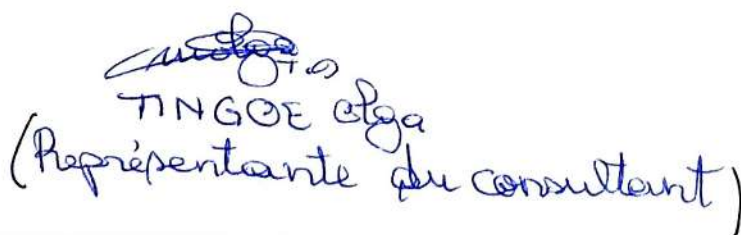 TINGOE Olga
(Représentante du consultant)